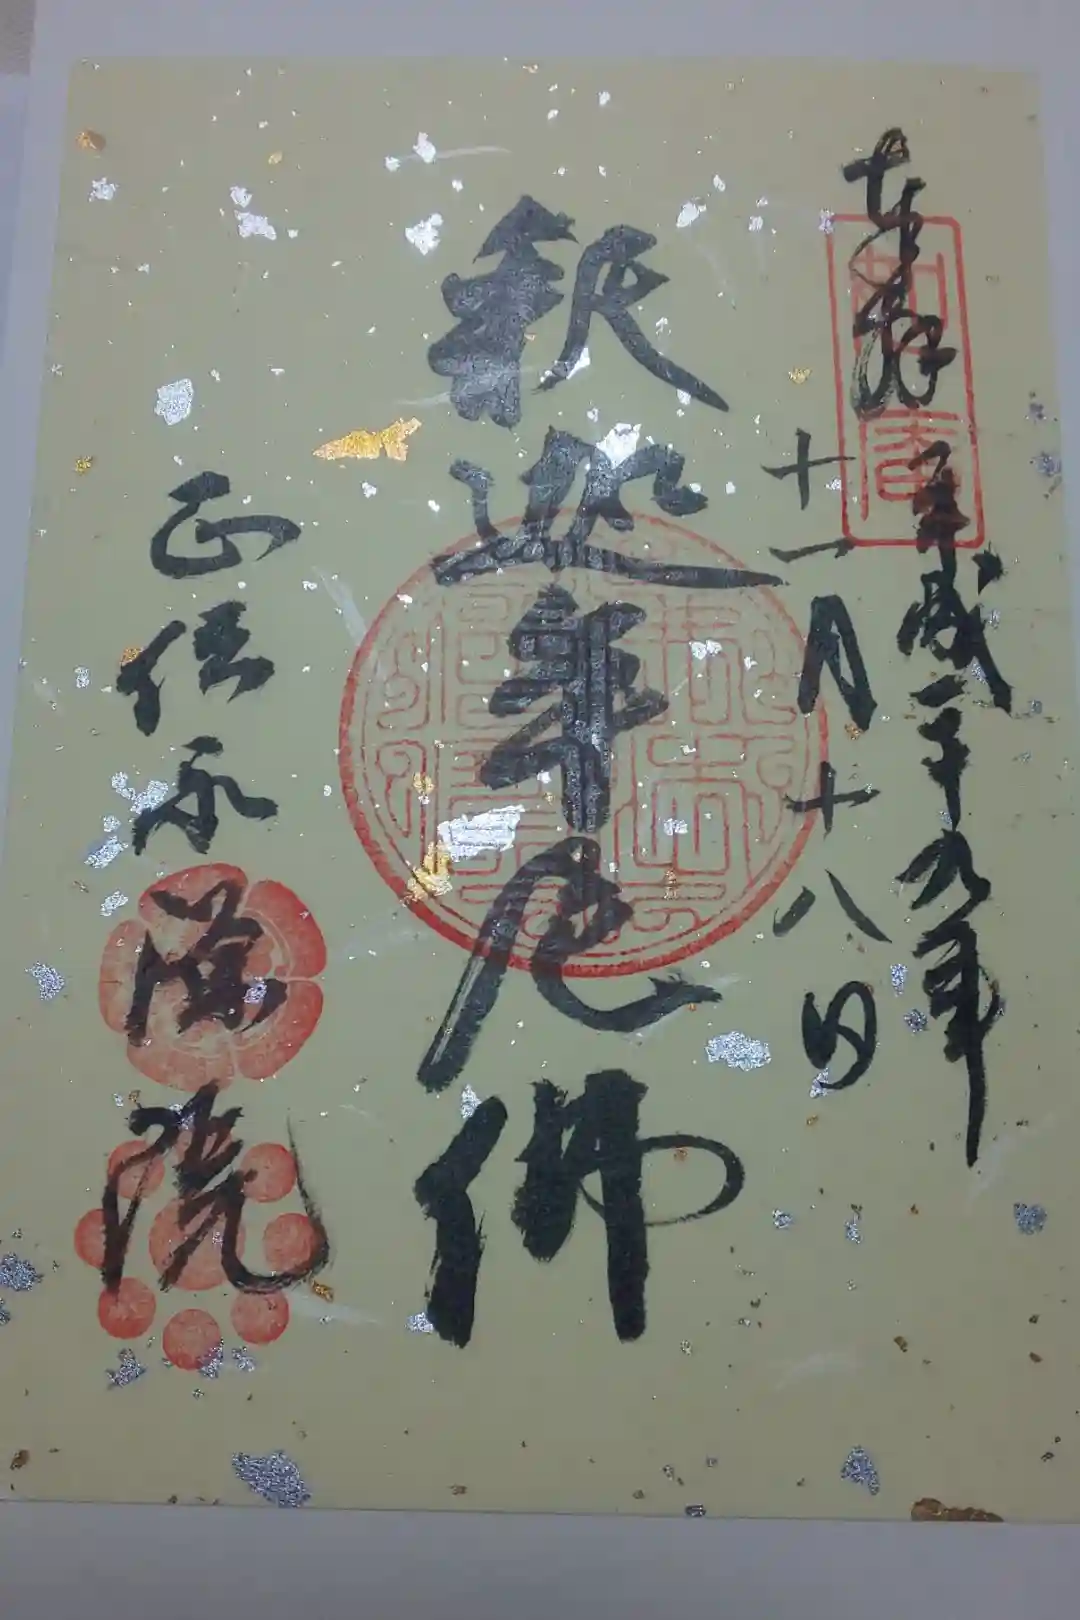 奉拝 平成二十九年
十一月十八日
如庵
釈迦牟尼佛
正伝永源院